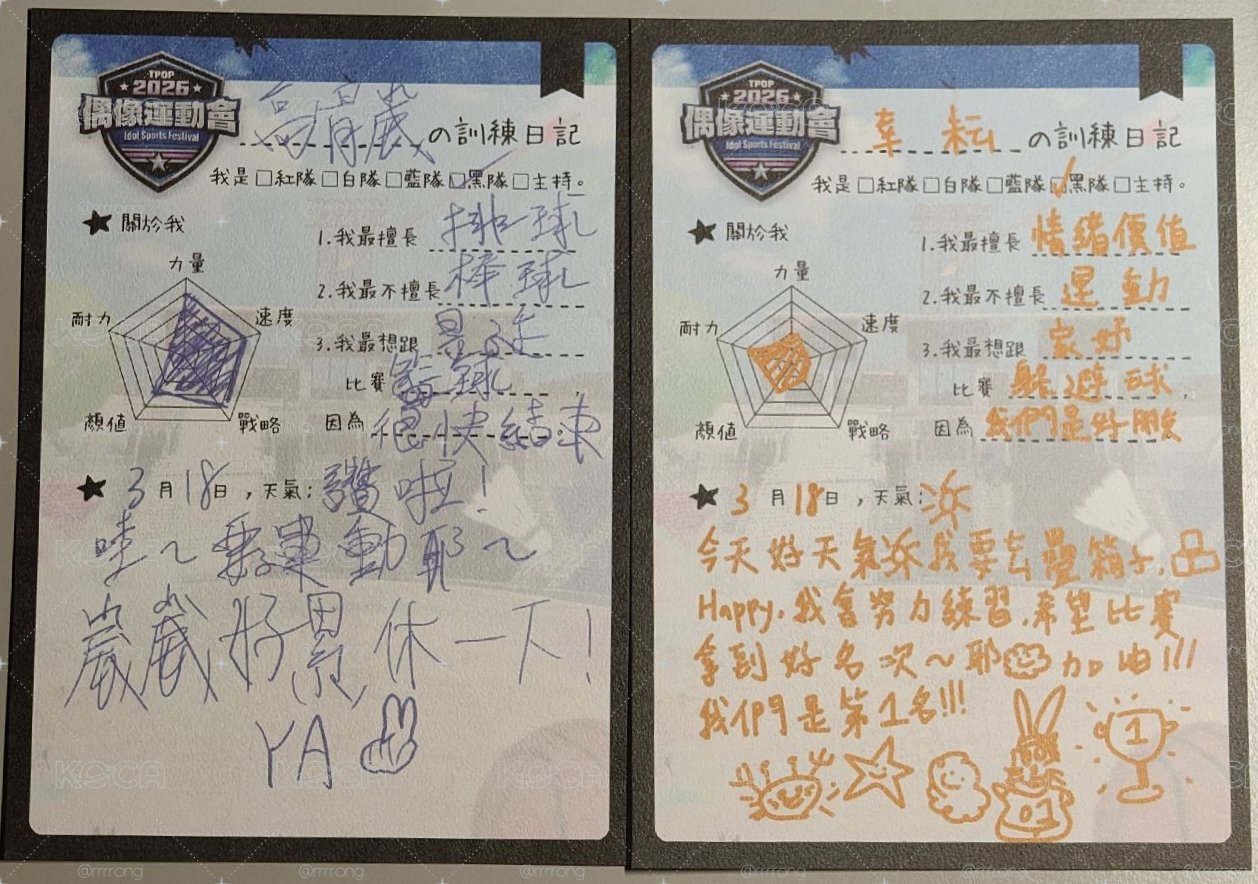 TPOP
2026
偶像運動會
Idol Sports Festival
高崴崴の訓練日記
我是□紅隊□白隊□藍隊□黑隊□主持。
關於我
力量
速度
戰略
顏值
耐力
1.我最擅長 排球
2.我最不擅長 棒球
3.我最想跟
比賽 躲避球,
因為 很快結束
3月18日，天氣：讚啦！
哇~要運動耶~
崴崴好累休一下！
YA
TPOP
2026
偶像運動會
Idol Sports Festival
韋耘の訓練日記
我是□紅隊□白隊□藍隊□黑隊□主持。
關於我
力量
速度
戰略
顏值
耐力
1.我最擅長 情緒價值
2.我最不擅長 運動
3.我最想跟 家妤
比賽 躲避球,
因為 我們是好朋友
3月18日，天氣：
今天好天氣 我要去疊箱子,
Happy, 我會努力練習,希望比賽
拿到好名次~耶 加油!!!
我們是第1名!!!
1
01
KOCA
@rrrrong